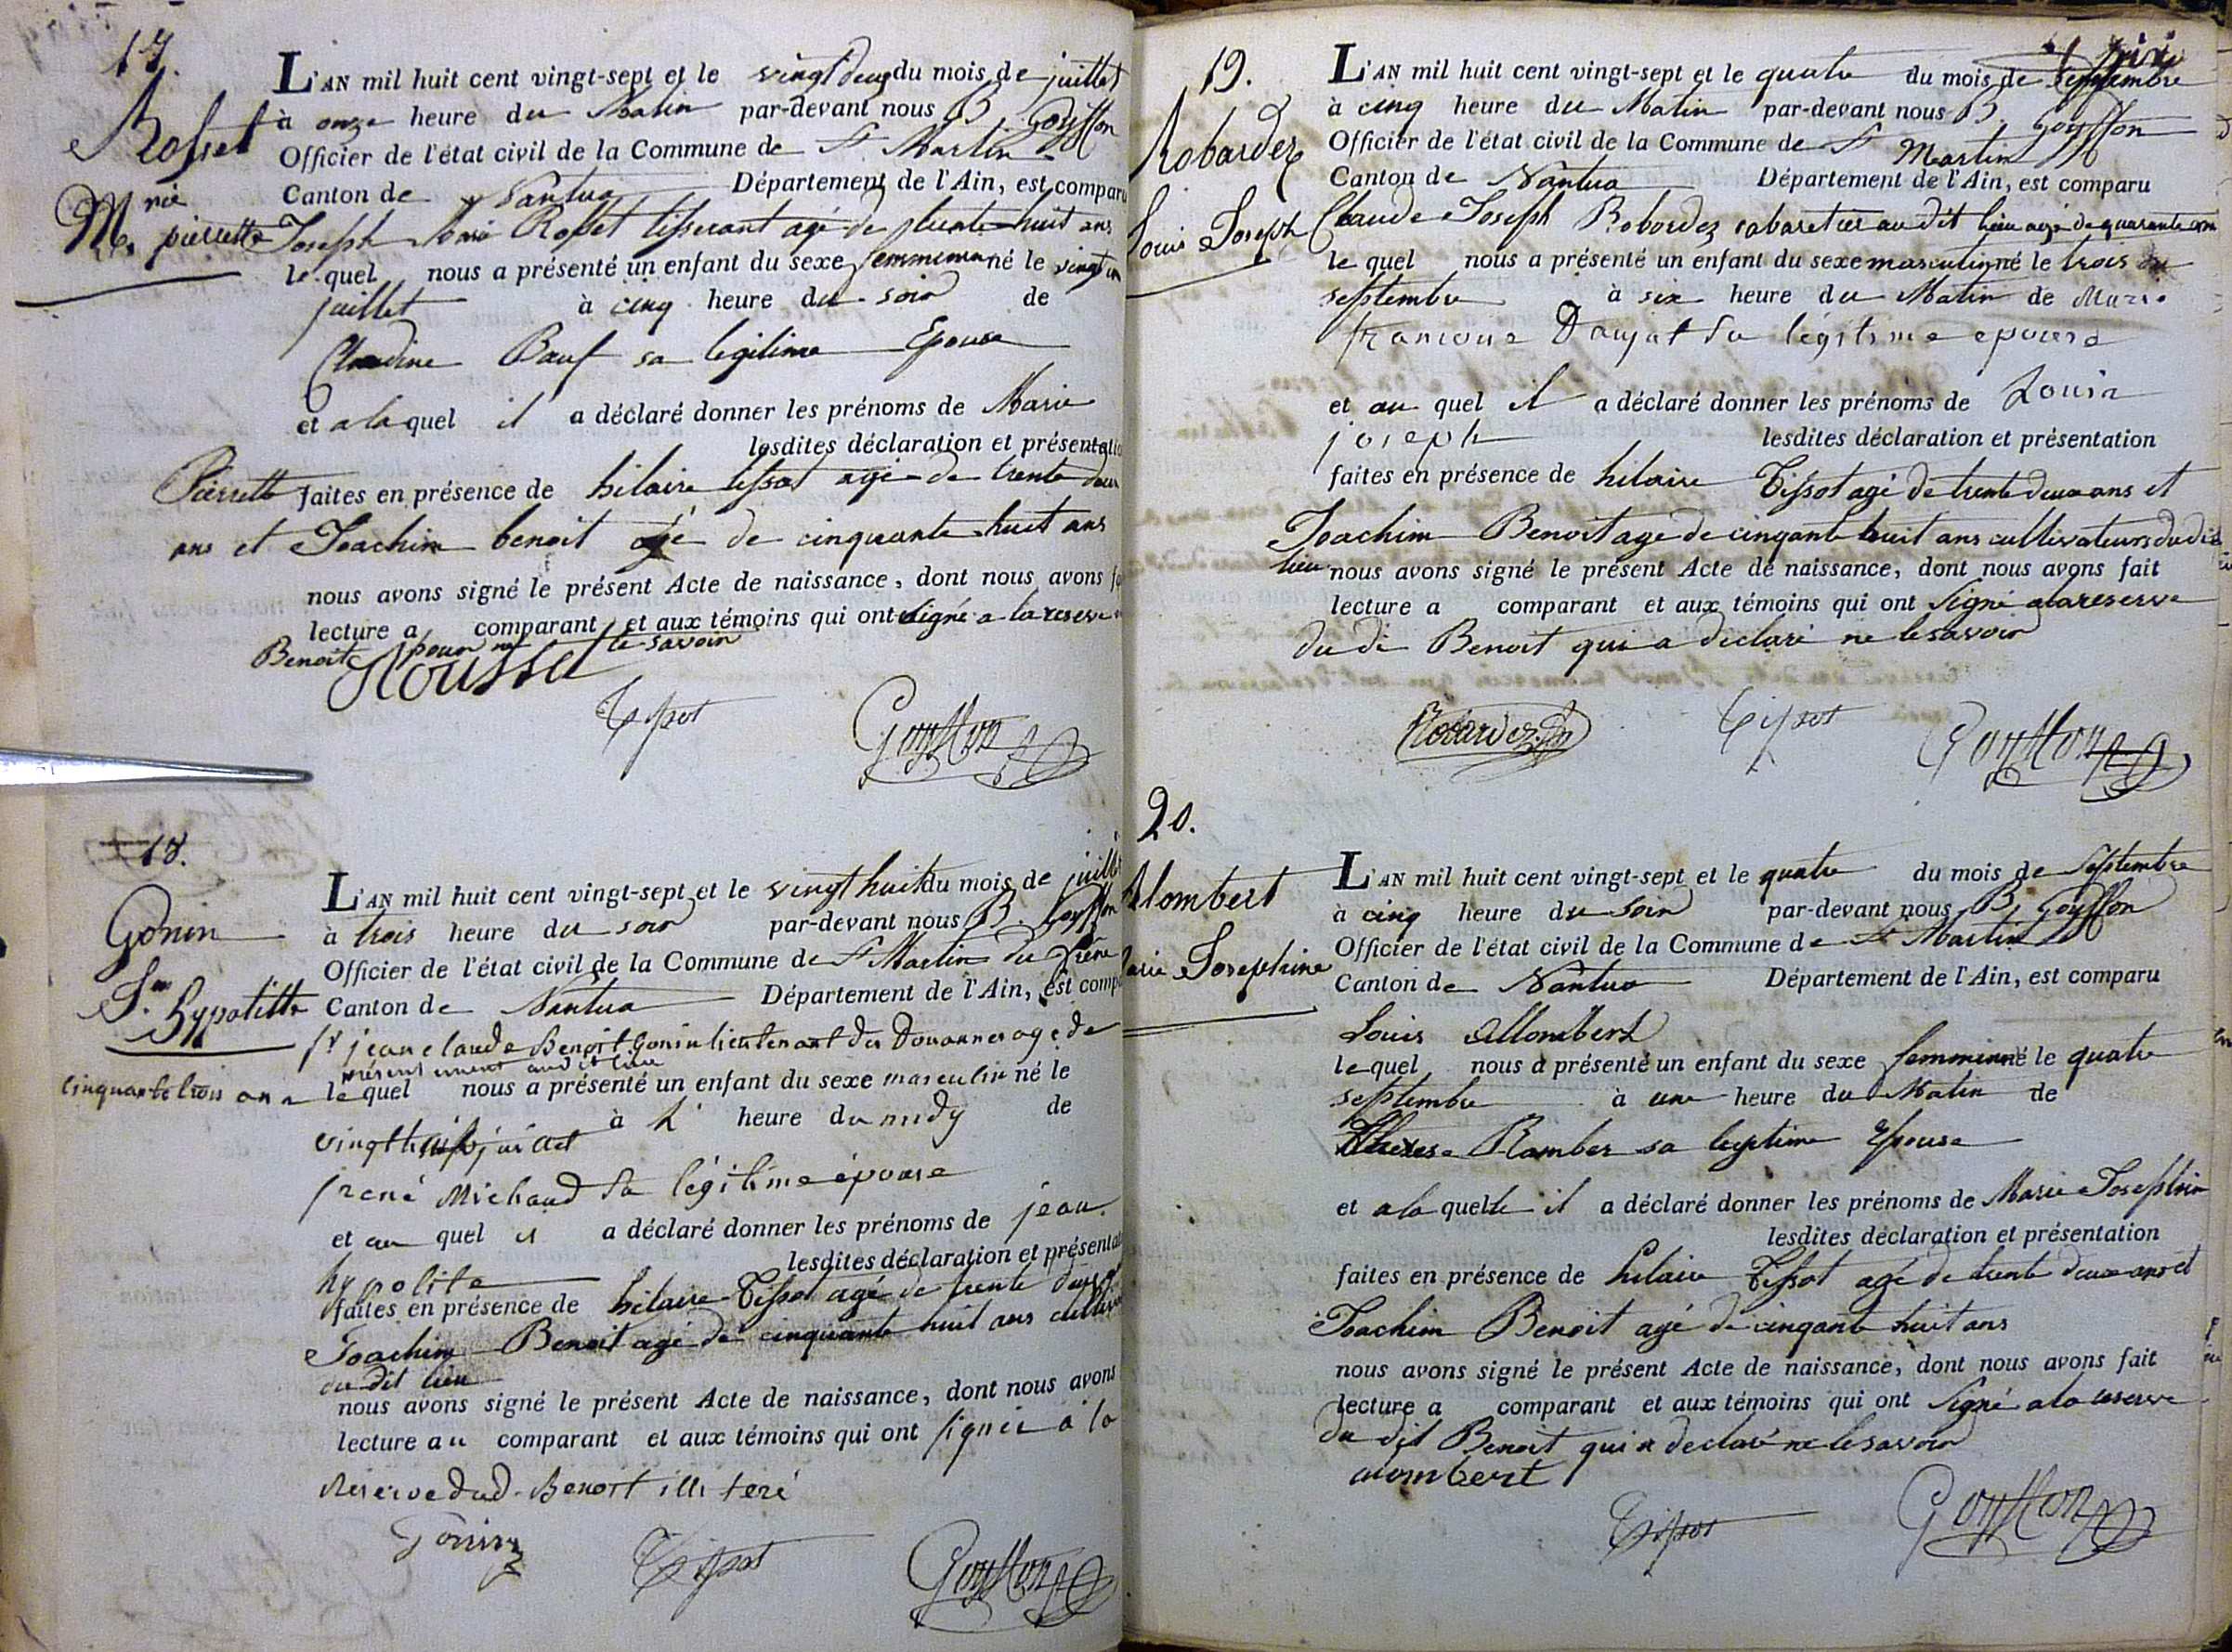 17.
Rosset
Mrie pierrette
L'AN mil huit cent vingt-sept et le vingt deux du mois de juillet
à onze heure du Matin par-devant nous B Goyffon
Officier de l'état civil de la Commune de St Martin
Canton de Nantua Département de l'Ain, est comparu
Joseph Marie Rosset tisserant agé de huit ans
le quel nous a présenté un enfant du sexe femminin né le vingt un
juillet à cinq heure du soir de
Claudine Bauf sa legitime Epouse
et a la quel il a déclaré donner les prénoms de Marie
lesdites déclaration et présentatio
Pierrette faites en présence de hilaire tissot agé de trente deux
ans et Joachim benoit agé de cinquante huit ans
nous avons signé le présent Acte de naissance, dont nous avons fa
lecture a comparant et aux témoins qui ont signé a la reserve
Benoit pour ne le savoir
Tissot Goyffon
18.
Gonin
Jn hypolitte
L'AN mil huit cent vingt-sept et le vingt huit du mois de juillet
à trois heure du soir par-devant nous B. Goyffon
Officier de l'état civil de la Commune de St Martin du frêne
Canton de Nantua Département de l'Ain, est comp
Sr jean claude Benoit Gonin lieutenant des Douannes age de
presentement audit lieu
cinquante trois ans le quel nous a présenté un enfant du sexe masculin né le
vingt huit juillet à heure du midy de
Michaud Sa légitime épouse
et au quel il a déclaré donner les prénoms de jean
lesdites déclaration et présentat
hypolite
faites en présence de hilaire Tissot agé de trente deux et
Joachim Benoit agé de cinquante huit ans cultiv
du dit lieu
nous avons signé le présent Acte de naissance, dont nous avons
lecture au comparant et aux témoins qui ont signée à la
Reserve dud. Benoit illiteré
Gonin Tissot Goyffon
19.
Robardez
Louis Joseph
L'AN mil huit cent vingt-sept et le quatre du mois de Septembre
à cinq heure du Matin par-devant nous B. Goyffon
Officier de l'état civil de la Commune de St Martin
Canton de Nantua Département de l'Ain, est comparu
Claude Joseph Robardez cabaretier au dit lieu agé de quarante ans
le quel nous a présenté un enfant du sexe masculin né le trois du
septembre à six heure du Matin de Marie
francoise Daujat Sa légitime epouse
et au quel il a déclaré donner les prénoms de Louis
joseph lesdites déclaration et présentation
faites en présence de hilaire Tissot agé de trente deux ans et
Joachim Benoit age de cinqante huit ans cultivateurs du dit
lieu nous avons signé le présent Acte de naissance, dont nous avons fait
lecture a comparant et aux témoins qui ont Signé a la reserve
du di Benoit qui a declaré ne le savoir
Robardez Tissot Goyffon
20.
Alombert
arie Josephine
L'AN mil huit cent vingt-sept et le quatre du mois de Septembre
à cinq heure du Soir par-devant nous B. Goyffon
Officier de l'état civil de la Commune de St Martin
Canton de Nantua Département de l'Ain, est comparu
Louis Allombert
le quel nous a présenté un enfant du sexe femminin né le quatre
septembre à une heure du Matin de
Therese Ramber sa legitime Epouse
et a la quelle il a déclaré donner les prénoms de Marie Josephine
lesdites déclaration et présentation
faites en présence de hilaire Tissot agé de trente deux ans et
Joachim Benoit agé de cinqante huit ans
nous avons signé le présent Acte de naissance, dont nous avons fait
lecture a comparant et aux témoins qui ont Signé a la reserve
du dit Benoit qui a declaré ne le savoir
alombert
Tissot Goyffon